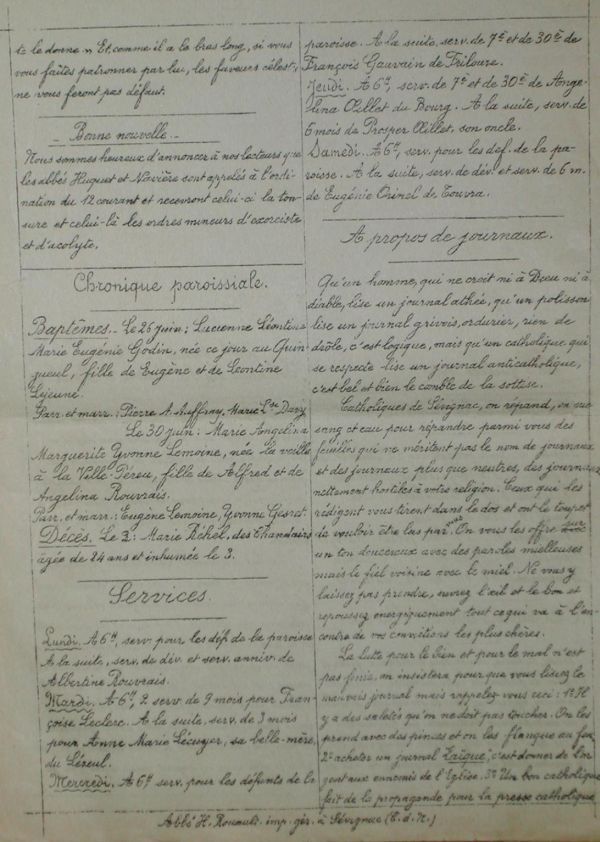 te le donne » Et comme il a le bras long, si vous
vous faites patronner par lui, les faveurs célest.
ne vous feront pas défaut.
Bonne nouvelle
Nous sommes heureux d'annoncer à nos lecteurs que
les abbés Huguet et Navière sont appelés à l'ordi-
nation du 12 courant et recevront celui-ci la ton-
sure et celui-là les ordres mineurs d'exorciste
et d'acolyte.
Chronique paroissiale.
Baptêmes. Le 26 juin: Lucienne Léontine
Marie Eugénie Godin, née ce jour au Guin-
gueul, fille de Eugène et de Léontine
Lejeune.
Parr. et marr.: Pierre A. Auffray, Marie Lse Davy
Le 30 juin: Marie Angelina
Marguerite Yvonne Lemoine, née la veille
à la Ville-Péreu, fille de Alfred et de
Angelina Rouvrais.
Parr. et marr: Eugène Lemoine, Yvonne Gesret.
Décès. Le 2: Marie Réhel, des
âgée de 24 ans et inhumée le 3.
Services.
Lundi. A 6h, serv. pour les déf. de la paroisse
A la suite, serv. de dév. et serv. anniv. de
Albertine Rouvrais.
Mardi. A 6h, 2 serv. de 9 mois pour Fran-
çoise Leclerc. A la suite, serv. de 3 mois
pour Anne Marie Lécuyer, sa belle-mère,
du Léreul.
Mercredi. A 6h serv. pour les défunts de la
paroisse. A la suite, serv. de 7e et de 30e de
François Gauvain de Triloure.
Jeudi. A 6h, serv. de 7e et de 30e de Ange-
lina Œillet du Bourg. A la suite, serv. de
6 mois de Prosper Œillet, son oncle.
Samedi. A 6h, serv. pour les def. de la pa-
roisse. A la suite, serv. de dév. et serv. de 6 m.
de Eugénie Orinel de Touvra.
A propos de journaux.
Qu'un homme, qui ne croit ni à Dieu ni à
diable, lise un journal athée, qu'un polisson
lise un journal grivois, ordurier, rien de
drôle, c'est logique, mais qu'un catholique qui
se respecte lise un journal anticatholique,
c'est bel et bien le comble de la sottise.
Catholiques de Sévignac, on répand, on sue
sang et eau pour répandre parmi vous des
feuilles qui ne méritent pas le nom de journaux
et des journaux plus que neutres, des journaux
nettement hostiles à votre religion. Ceux qui les
rédigent vous tirent dans le dos et ont le toupet
de vouloir être lus par vous. On vous les offre sur
un ton doucereux avec des paroles mielleuses
mais le fiel voisine avec le miel. Ne vous y
laissez pas prendre, ouvrez l'œil et le bon et
repoussez énergiquement tout ce qui va à l'en-
contre de vos convictions les plus chères.
La lutte pour le bien et pour le mal n'est
pas finie, on insistera pour que vous lisiez le
mauvais journal mais rappelez-vous ceci: 1º Il
y a des saletés qu'on ne doit pas toucher. On les
prend avec des pinces et on les flanque au feu
2º acheter un journal laïque, c'est donner de l'ar-
gent aux ennemis de l'Eglise. 3º Un bon catholique
fait de la propagande pour la presse catholique
Abbé H. Rouault. imp. gér. à Sévignac (C. d. N.)